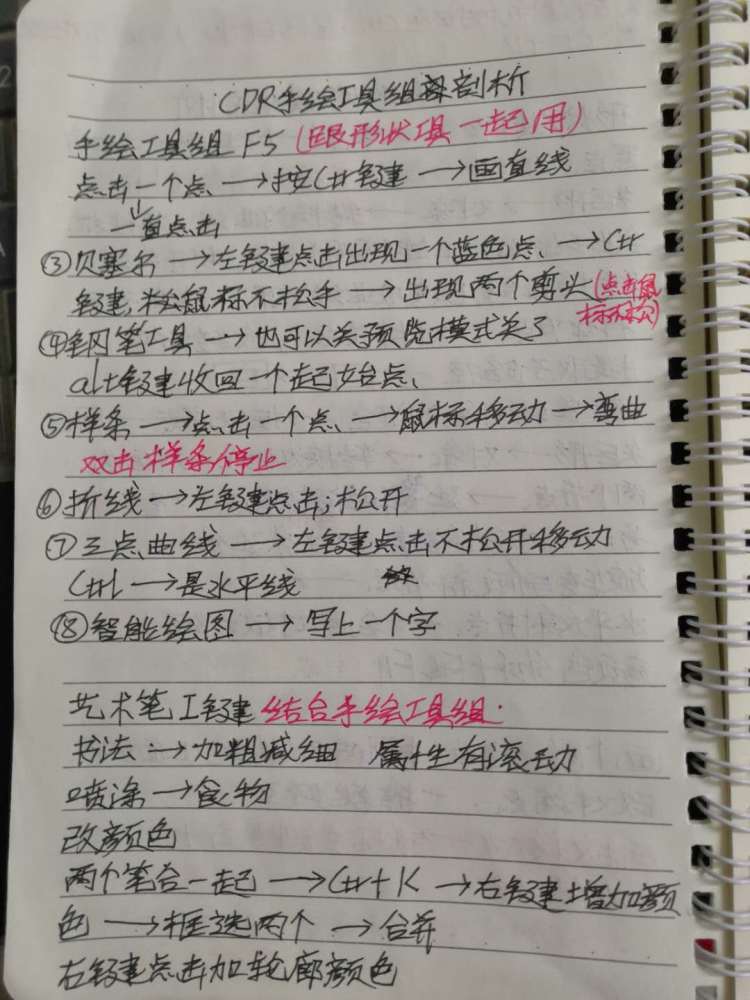 CDR手绘工具组剖析
手绘工具组 F5 (跟形状工具一起用)
点击一个点 →按Ctrl键 →画直线
↓
一直点击
③贝塞尔 →左键点击出现一个蓝色点 →Ctrl
键,松鼠标不松手 →出现两个剪头(点击鼠
标不松)
④钢笔工具 →也可以关预览模式关了
alt键收回一个起始点、
⑤样条 →点击一个点 →鼠标移动 →弯曲
双击样条停止
⑥折线 →左键点击;松开
⑦三点曲线 →左键点击不松开移动
Ctrl →是水平线
⑧智能绘图 → 写上一个字
艺术笔工键 结合手绘工具组.
书法 →加粗减细 属性有滚动
喷涂 →食物
改颜色
两个笔合一起 →Ctrl+K →右键增加颜
色 →框选两个 →合并
右键点击加轮廓颜色